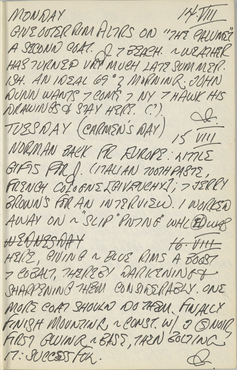 MONDAY 14 VIII
GIVE OUTER RIM ALTRS ON "THE PALUMES"
A SECOND COAT. & BEACH. ~ WEATHER
HAS TURNED VRY MUCH LATE SUMMER
ISH. AN IDEAL 69° MORNING. JOHN
DUNN WANTS T COME T NY T HAWK HIS
DRAWINGS & STAY HERE. (!)
TUESDAY (CARMEN'S DAY)
15 VIII
NORMAN BACK FR EUROPE. LITTLE
GIFTS FR J. (ITALIAN TOOTHPASTE,
FRENCH COLOGNE [GIVENCHY]; JERRY
BROWNS FOR AN INTERVIEW. I WORKED
AWAY ON ~ "SLIP
WEDNESDAY 16 VIII
HERE, GIVING ~ BLUE RIMS A BOOST
T COBALT, THEREBY DARKENING &
SHARPENING THEM CONSIDERABLY. ONE
MORE COAT SHOULD DO THEM. FINALLY
FINISH MOUNTING, ~ CONST. W/ NOIR
FIRST GLUING ~ BASE, THEN BOLTING
IT: SUCCESSFUL.